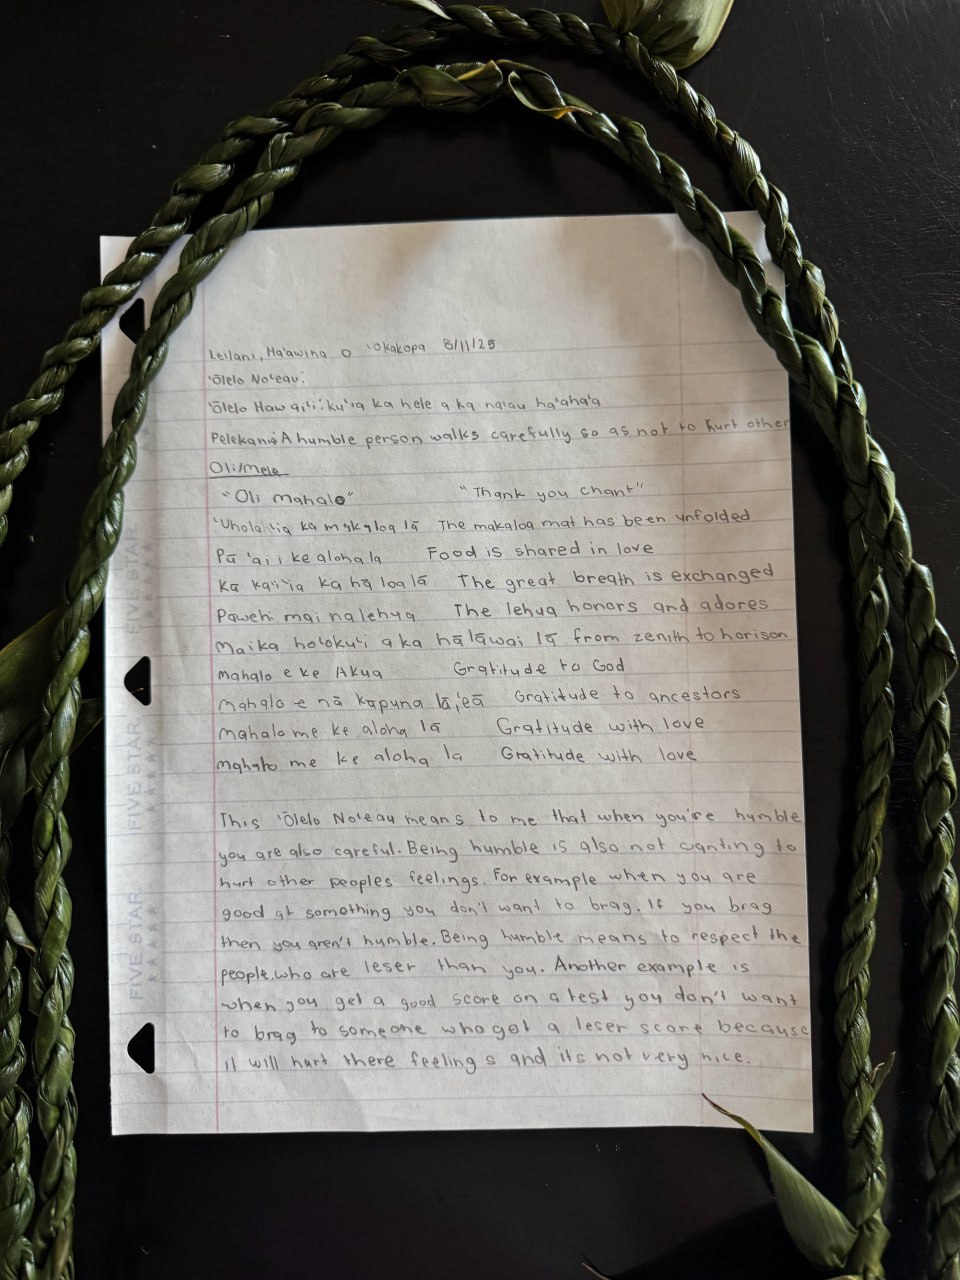 Leilani, Ha'awina o 'Okakopa 8/11/25
'Ōlelo No'eau:
'Ōlelo Hawai'i: ku'ia ka hele a ka na'au ha'aha'a
Pelekania: A humble person walks carefully so as not to hurt other
Oli/Mele
"Oli Mahalo" "Thank you chant"
'Uhola 'ia ka makaloa lā The makaloa mat has been unfolded
Pū 'ai i ke aloha la Food is shared in love
Kā ka'i'ia ka hā loa lā The great breath is exchanged
Pāwehi mai na lehua The lehua honors and adores
Mai ka ho'oku'i a ka hālāwai lā from zenith to horison
Mahalo e ke Akua Gratitude to God
Mahalo e nā kūpuna lā, 'eā Gratitude to ancestors
Mahalo me ke aloha lā Gratitude with love
Mahalo me ke aloha la Gratitude with love
This 'Ōlelo No'eau means to me that when you're humble
you are also careful. Being humble is also not wanting to
hurt other peoples feelings. For example when you are
good at something you don't want to brag. If you brag
then you aren't humble. Being humble means to respect the
people who are leser than you. Another example is
when you get a good score on a test you don't want
to brag to someone who got a leser score because
it will hurt there feelings and its not very nice.
FIVE STAR
FIVE STAR
FIVE STAR